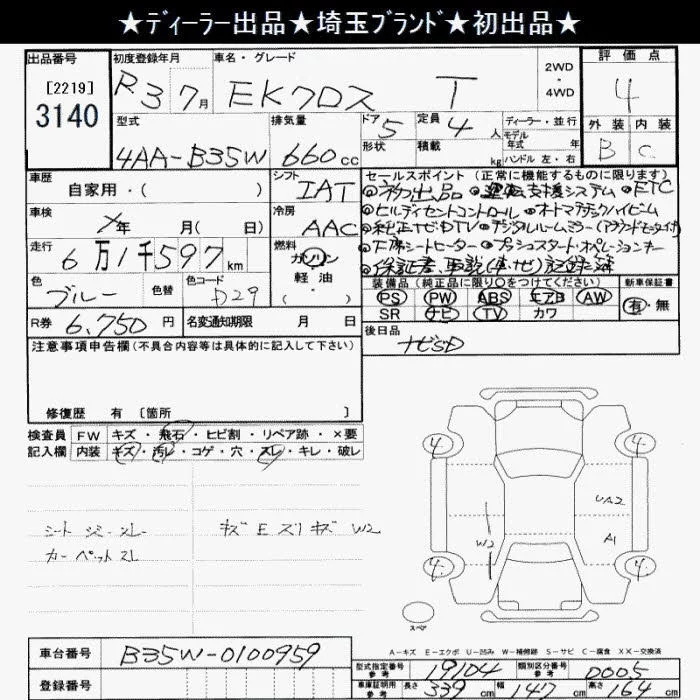 ★ディーラー出品★埼玉ブランド★初出品★
出品番号 初度登録年月 車名・グレード 2WD・4WD 評価点
[2219] 3140 R3 7月 EKクロス T 4
型式 排気量 ドア 5 定員 4人 ディーラー・並行 外装 内装
4AA-B35W 660cc 形状 積載 kg モデル年式 年 ハンドル 左・右 B C
車歴 自家用・( ) シフト IAT セールスポイント(正常に機能するものに限ります)
◎初出品 ◎運転支援システム ◎ETC
車検 年 月( 日) 冷房 AAC ◎ヒルディセントコントロール ◎オートマチックハイビーム
◎純正ナビTV ◎デジタルルームミラー(アラウンドモニター付)
走行 6万1千597km 燃料 ガソリン 軽油・( ) ◎F席シートヒーター ◎プッシュスタート・オペレーションキー
◎保証書、取説(車・ナビ)記録簿
色 ブルー 色替 色コード D29 装備品(純正品に限り○をつけてください) 新車保証書
PS PW ABS エアB AW 有・無
SR ナビ TV カワ
R券 6,750円 名変通知期限 月 日 後日品 ナビSD
注意事項申告欄(不具合内容等は具体的に記入して下さい)
修復歴 有 [箇所 ]
検査員 FW キズ・飛石・ヒビ割・リペア跡・×要
記入欄 内装 キズ・汚レ・コゲ・穴・スレ・キレ・破レ
4 4
UA2
シート シミ スレ キズ E スリキズ W2 W2 A1
カーペットスレ
4 4
スペア
A-キズ E-エクボ U-凹み W-補修跡 S-サビ C-腐食 XX-交換済
車台番号 B35W-0100959 型式指定番号 参考 19104 類別区分番号 参考 0005
登録番号 車庫証明用 参考 長さ 339cm 幅 147cm 高さ 164cm